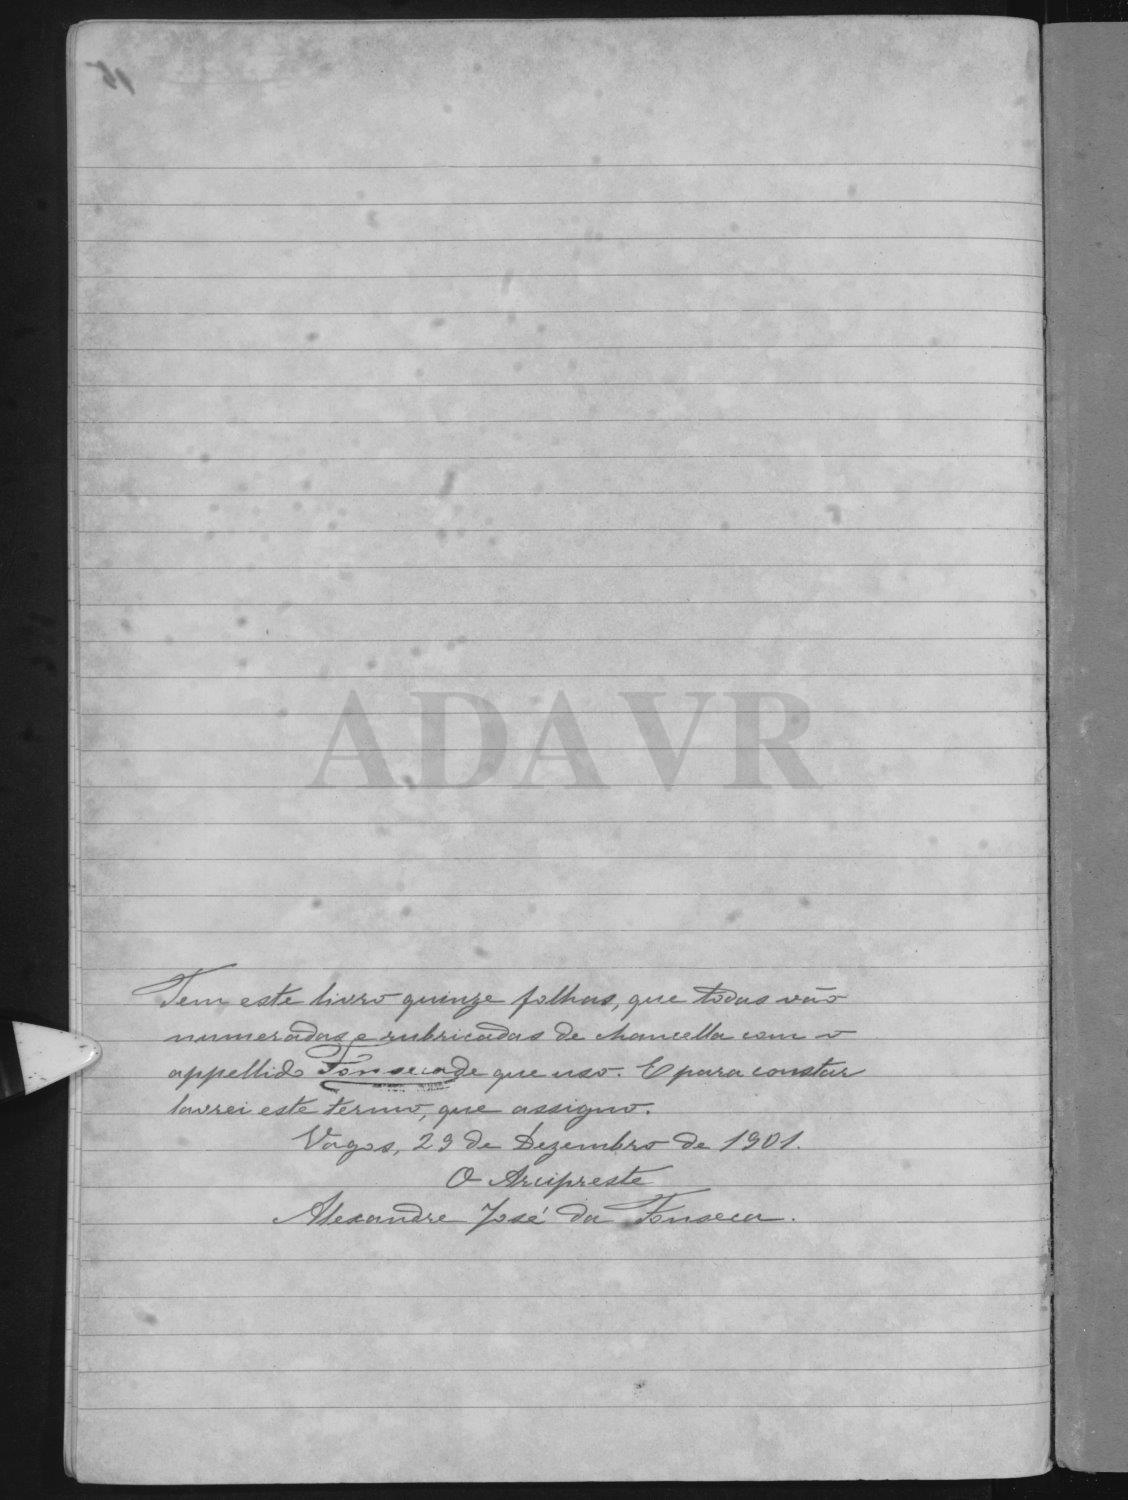 ADAVR
Tem este livro quinze folhas, que todas vão
numeradas e rubricadas de chancella com o
appellido Fonseca de que uso. E para constar
lavrei este termo, que assigno.
Vagos, 29 de Dezembro de 1901.
O Arcipreste
Alexandre José da Fonseca.